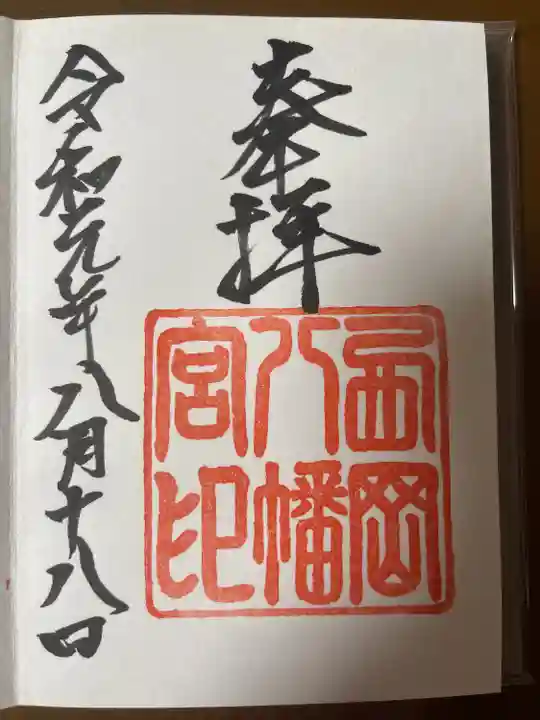 奉拝
西岡
八幡
宮印
令和元年八月十八日